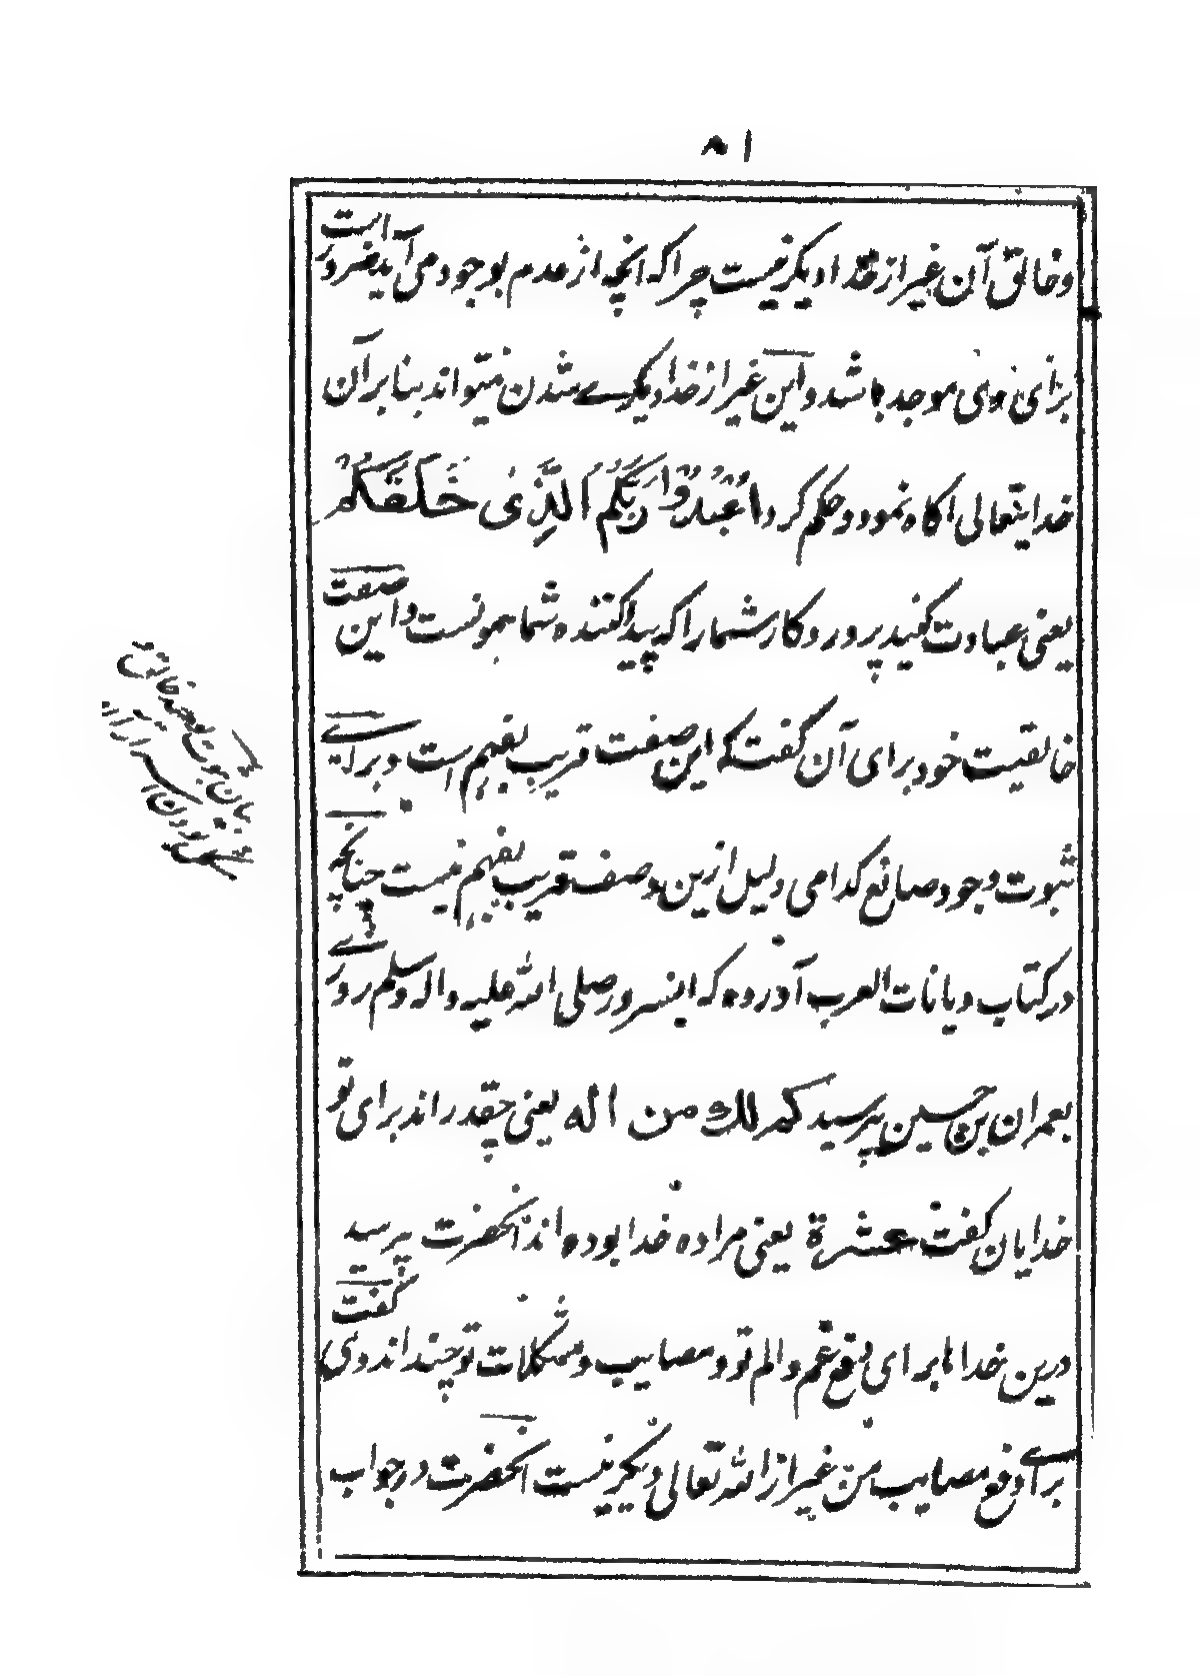 ۸۱
وخالق آن غیر از خدا دیگر نیست چرا که انچه از عدم بوجود می آید ضرور است
برای وی موجد باشد و این غیر از خدا دیگرے شدن نمیتواند بنابر آن
خدایتعالی آگاه نمود و حکم کرد اعْبُدُوْا رَبَّكُمُ الَّذِیْ خَلَقَكُمْ
یعنی عبادت کنید پروردکار شما را که پیدا کننده شما همونست و این صفت
خالقیت خود برای آن گفت که این صفت قریب بفهم است و برائے
ثبوت وجود صانع کدامی دلیل ازین وصف قریب بفهم نیست چنانچه
در کتاب دیانات العرب آورده که اینسرور صلی الله علیه واله وسلم روزے
بعمران بن حسین پرسید کم لك من اله یعنی چقدر اند برای تو
خدایان گفت عشرة یعنی مرا ده خدا بوده اند آنحضرت پرسید
درین خداها برای دفع غم و الم تو و مصایب و مشکلات تو چند اند وی گفت
برائے دفع مصایب من غیر از الله تعالی دیگر نیست آنحضرت در جواب